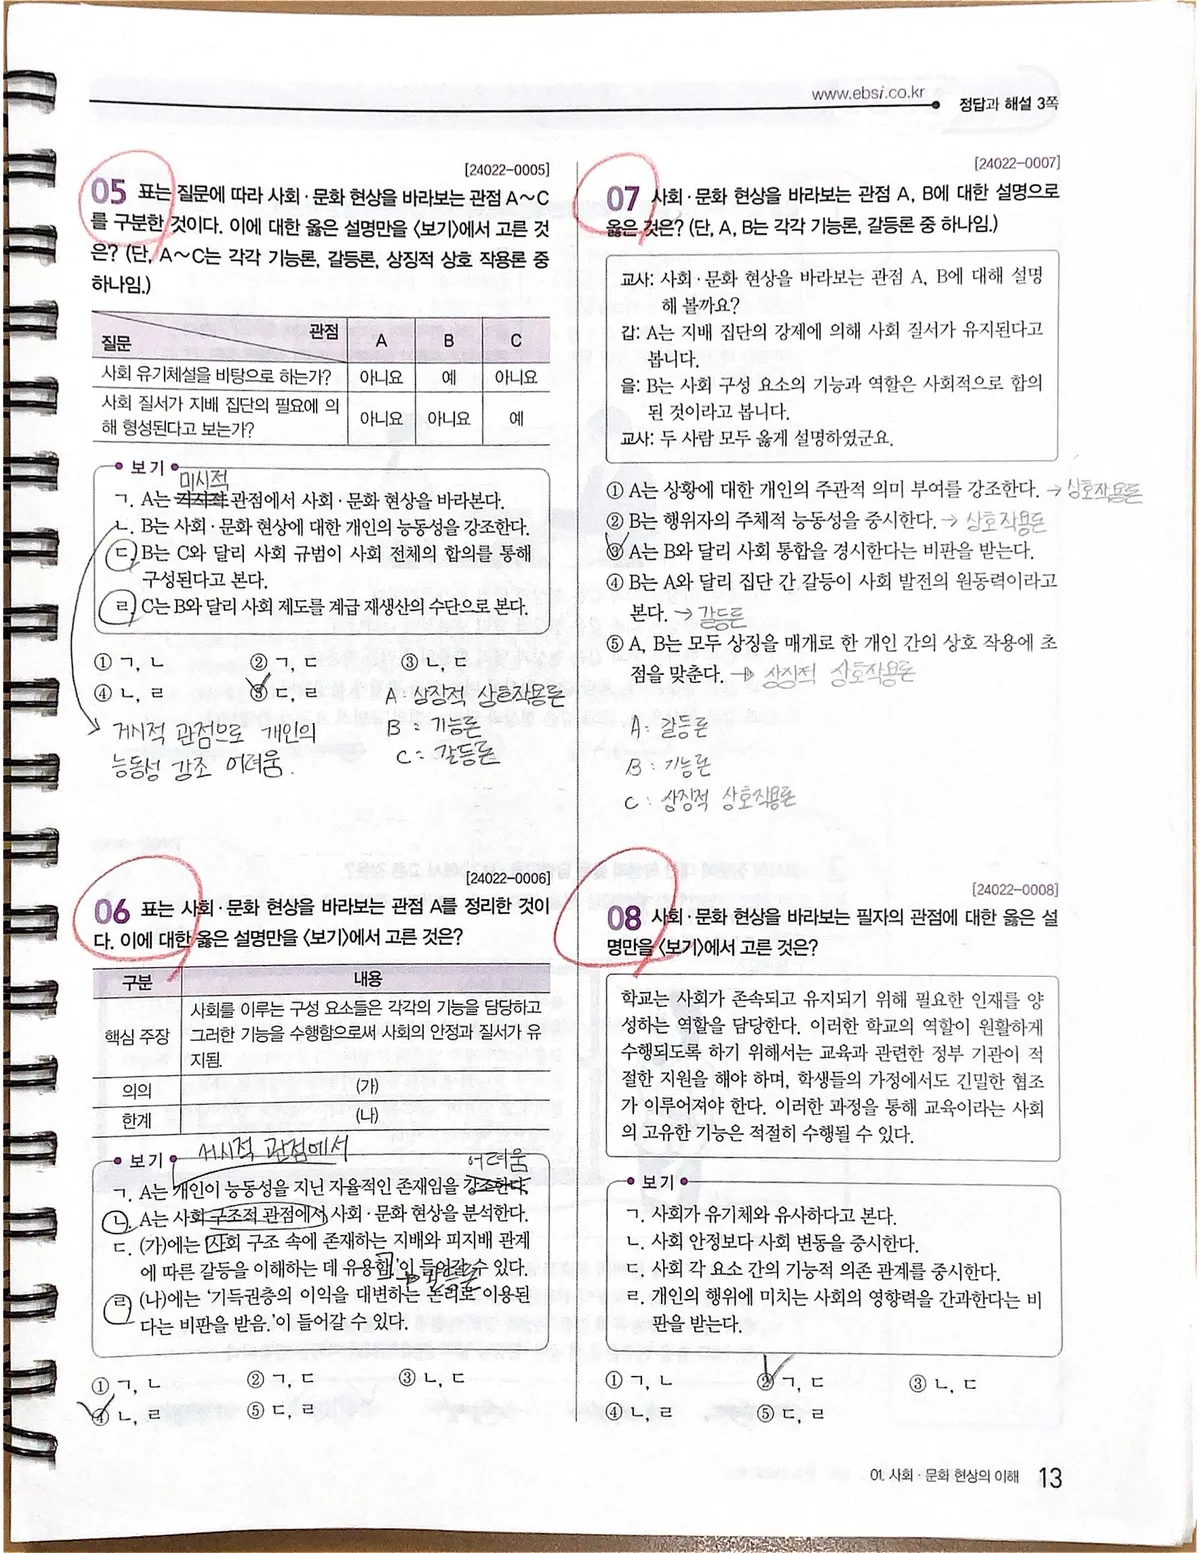 www.ebsi.co.kr
정답과 해설 3쪽
[24022-0005]
05 표는 질문에 따라 사회·문화 현상을 바라보는 관점 A~C
를 구분한 것이다. 이에 대한 옳은 설명만을 <보기>에서 고른 것
은? (단, A~C는 각각 기능론, 갈등론, 상징적 상호 작용론 중
하나임.)
질문 관점 A B C
사회 유기체설을 바탕으로 하는가? 아니요 예 아니요
사회 질서가 지배 집단의 필요에 의
해 형성된다고 보는가? 아니요 아니요 예
보기
미시적
ㄱ. A는 관점에서 사회·문화 현상을 바라본다.
ㄴ. B는 사회·문화 현상에 대한 개인의 능동성을 강조한다.
ㄷ. B는 C와 달리 사회 규범이 사회 전체의 합의를 통해
구성된다고 본다.
ㄹ. C는 B와 달리 사회 제도를 계급 재생산의 수단으로 본다.
① ㄱ, ㄴ ② ㄱ, ㄷ ③ ㄴ, ㄷ
④ ㄴ, ㄹ ⑤ ㄷ, ㄹ
A : 상징적 상호작용론
B : 기능론
C : 갈등론
거시적 관점으로 개인의
능동성 강조 어려움.
[24022-0006]
06 표는 사회·문화 현상을 바라보는 관점 A를 정리한 것이
다. 이에 대한 옳은 설명만을 <보기>에서 고른 것은?
구분 내용
핵심 주장 사회를 이루는 구성 요소들은 각각의 기능을 담당하고
그러한 기능을 수행함으로써 사회의 안정과 질서가 유
지됨.
의의 (가)
한계 (나)
보기
거시적 관점에서
어려움
ㄱ. A는 개인이 능동성을 지닌 자율적인 존재임을 강조한다.
ㄴ. A는 사회 구조적 관점에서 사회·문화 현상을 분석한다.
ㄷ. (가)에는 '사회 구조 속에 존재하는 지배와 피지배 관계
에 따른 갈등을 이해하는 데 유용함.'이 들어갈 수 있다.
→ 갈등론
ㄹ. (나)에는 '기득권층의 이익을 대변하는 논리로 이용된
다는 비판을 받음.'이 들어갈 수 있다.
① ㄱ, ㄴ ② ㄱ, ㄷ ③ ㄴ, ㄷ
④ ㄴ, ㄹ ⑤ ㄷ, ㄹ
[24022-0007]
07 사회·문화 현상을 바라보는 관점 A, B에 대한 설명으로
옳은 것은? (단, A, B는 각각 기능론, 갈등론 중 하나임.)
교사: 사회·문화 현상을 바라보는 관점 A, B에 대해 설명
해 볼까요?
갑: A는 지배 집단의 강제에 의해 사회 질서가 유지된다고
봅니다.
을: B는 사회 구성 요소의 기능과 역할은 사회적으로 합의
된 것이라고 봅니다.
교사: 두 사람 모두 옳게 설명하였군요.
① A는 상황에 대한 개인의 주관적 의미 부여를 강조한다. → 상호작용론
② B는 행위자의 주체적 능동성을 중시한다. → 상호작용론
③ A는 B와 달리 사회 통합을 경시한다는 비판을 받는다.
④ B는 A와 달리 집단 간 갈등이 사회 발전의 원동력이라고
본다. → 갈등론
⑤ A, B는 모두 상징을 매개로 한 개인 간의 상호 작용에 초
점을 맞춘다. → 상징적 상호작용론
A : 갈등론
B : 기능론
C : 상징적 상호작용론
[24022-0008]
08 사회·문화 현상을 바라보는 필자의 관점에 대한 옳은 설
명만을 <보기>에서 고른 것은?
학교는 사회가 존속되고 유지되기 위해 필요한 인재를 양
성하는 역할을 담당한다. 이러한 학교의 역할이 원활하게
수행되도록 하기 위해서는 교육과 관련한 정부 기관이 적
절한 지원을 해야 하며, 학생들의 가정에서도 긴밀한 협조
가 이루어져야 한다. 이러한 과정을 통해 교육이라는 사회
의 고유한 기능은 적절히 수행될 수 있다.
보기
ㄱ. 사회가 유기체와 유사하다고 본다.
ㄴ. 사회 안정보다 사회 변동을 중시한다.
ㄷ. 사회 각 요소 간의 기능적 의존 관계를 중시한다.
ㄹ. 개인의 행위에 미치는 사회의 영향력을 간과한다는 비
판을 받는다.
① ㄱ, ㄴ ② ㄱ, ㄷ ③ ㄴ, ㄷ
④ ㄴ, ㄹ ⑤ ㄷ, ㄹ
01. 사회·문화 현상의 이해 13